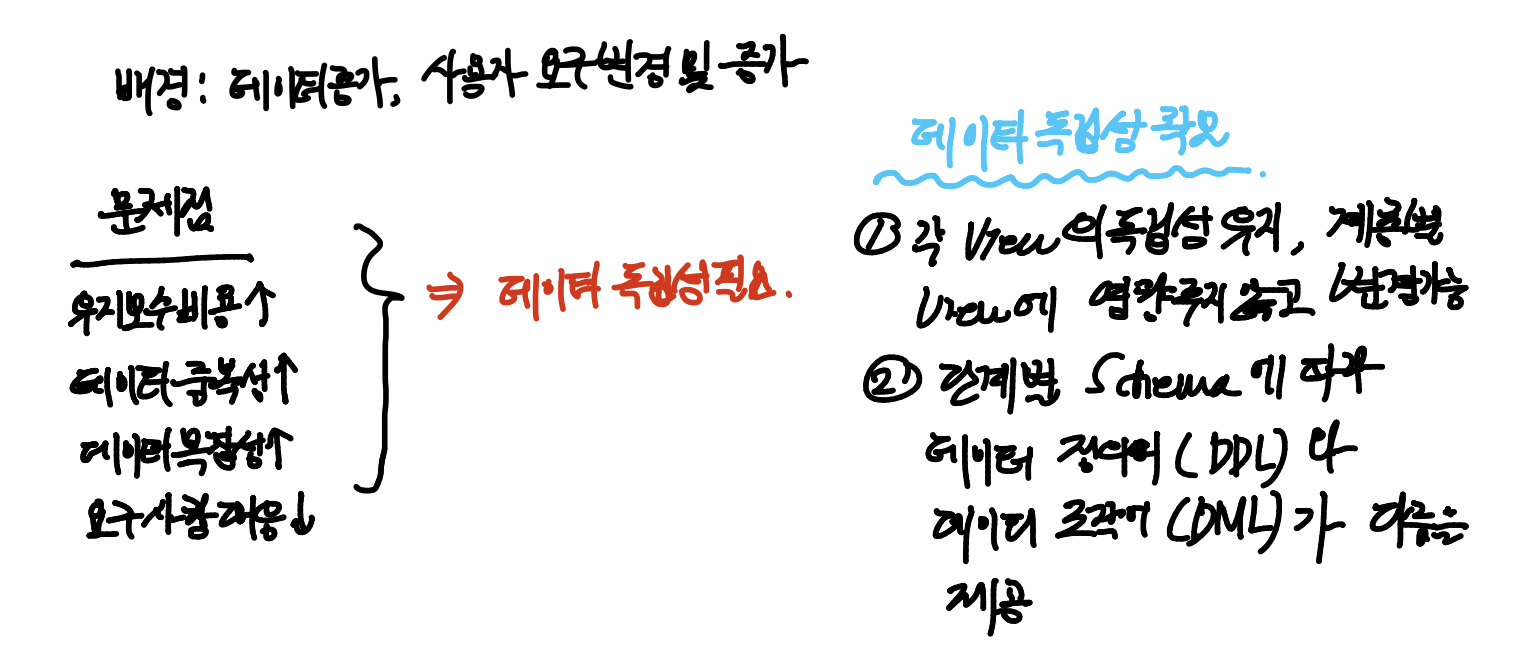 배경: 데이터증가, 사용자 요구변경 및 증가
문제점
유지보수비용↑
데이터 중복성↑
데이터복잡성↑
요구사항대응↓
⇒ 데이터 독립성필요.
데이터 독립성 확보
① 각 View의 독립성 유지, 계층별
View에 영향주지않고 변경가능
② 단계별 Schema에 따라
데이터 정의어(DDL)와
데이터 조작어(DML)가 다름을
제공